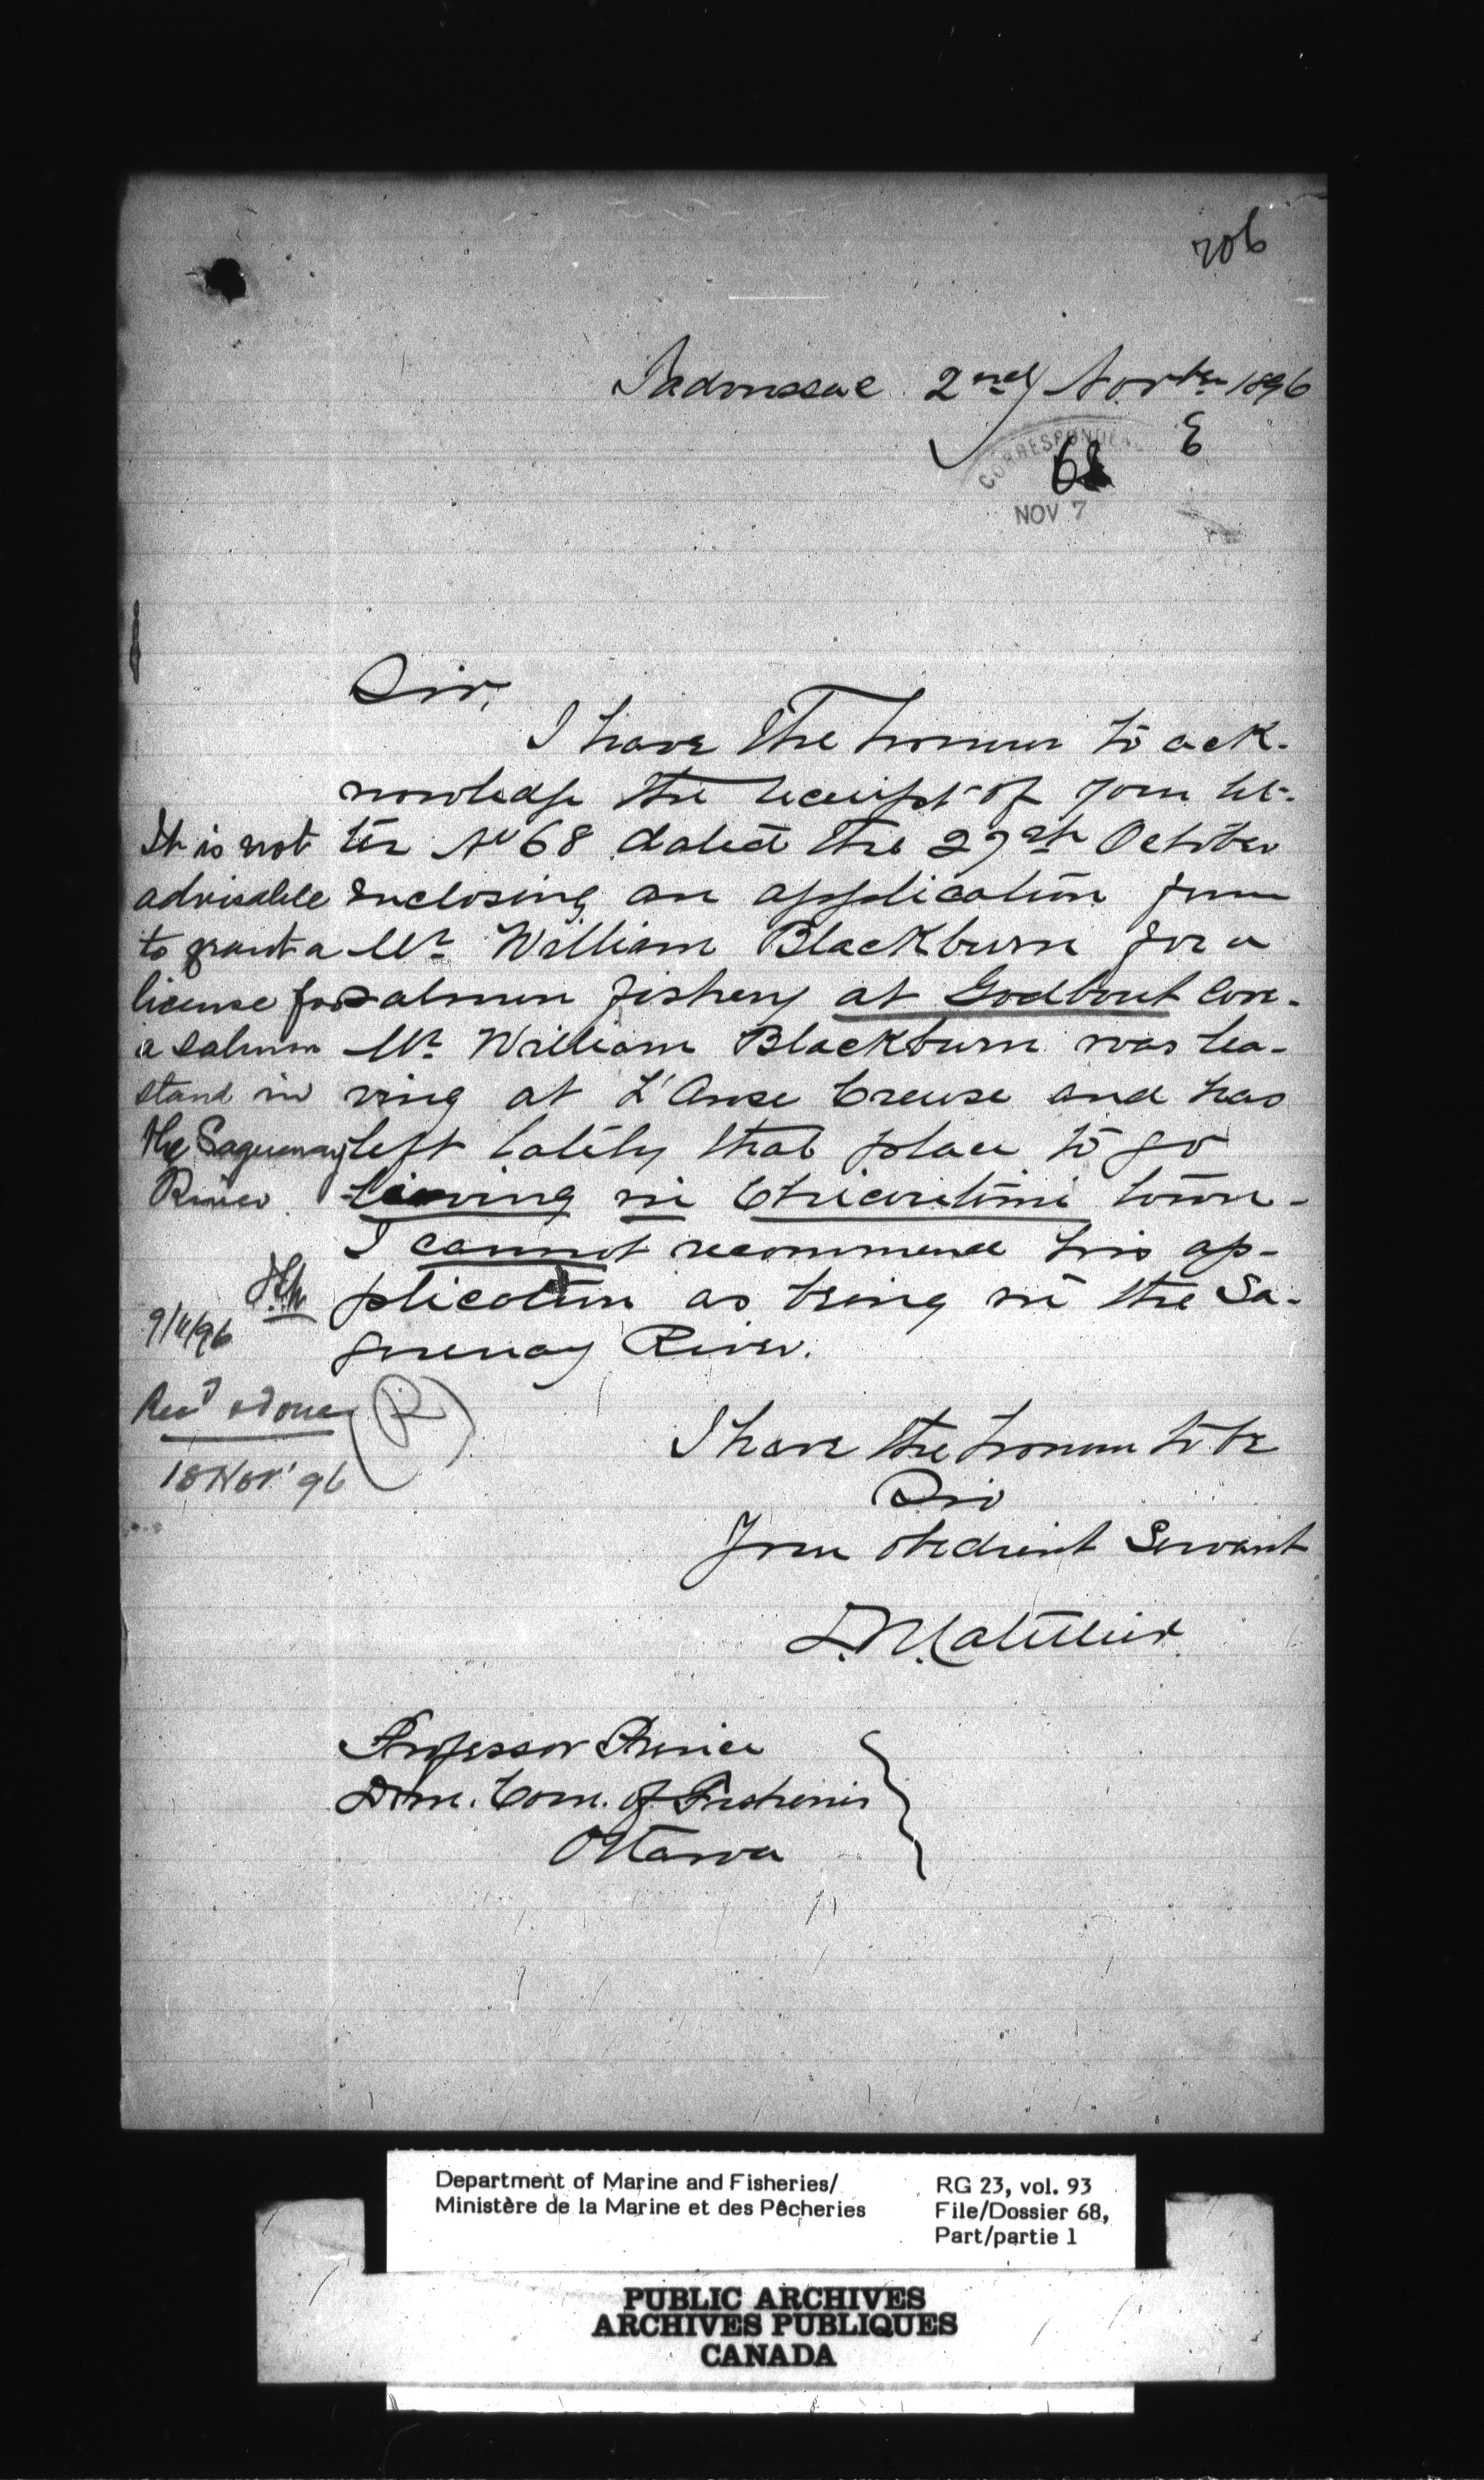 706
Tadoussac 2nd Novber 1896
E
CORRESPONDENCE
68
NOV 7
Sir,
I have the honour to ack-
nowledge the receipt of your let-
ter No 68 dated the 29th October
enclosing an application from
Mr William Blackburn for a
salmon fishery at Godbout Cove.
Mr William Blackburn was lea-
ving at L'Anse Creuse and has
left lately that place to go
living in Chicoutimi town-
I cannot recommend his ap-
plication as being in the Sa-
guenay River.
It is not
advisable
to grant a
license for
a salmon
stand in
the Saguenay
River.
9/11/96
Recd & done
(R)
18 Nov' 96
I have the honour to be
Sir
Your obedient Servant
L.N. Catellier
Professor Prince
Dom. Com. of Fisheries
Ottawa
Department of Marine and Fisheries/
Ministère de la Marine et des Pêcheries
RG 23, vol. 93
File/Dossier 68,
Part/partie 1
PUBLIC ARCHIVES
ARCHIVES PUBLIQUES
CANADA